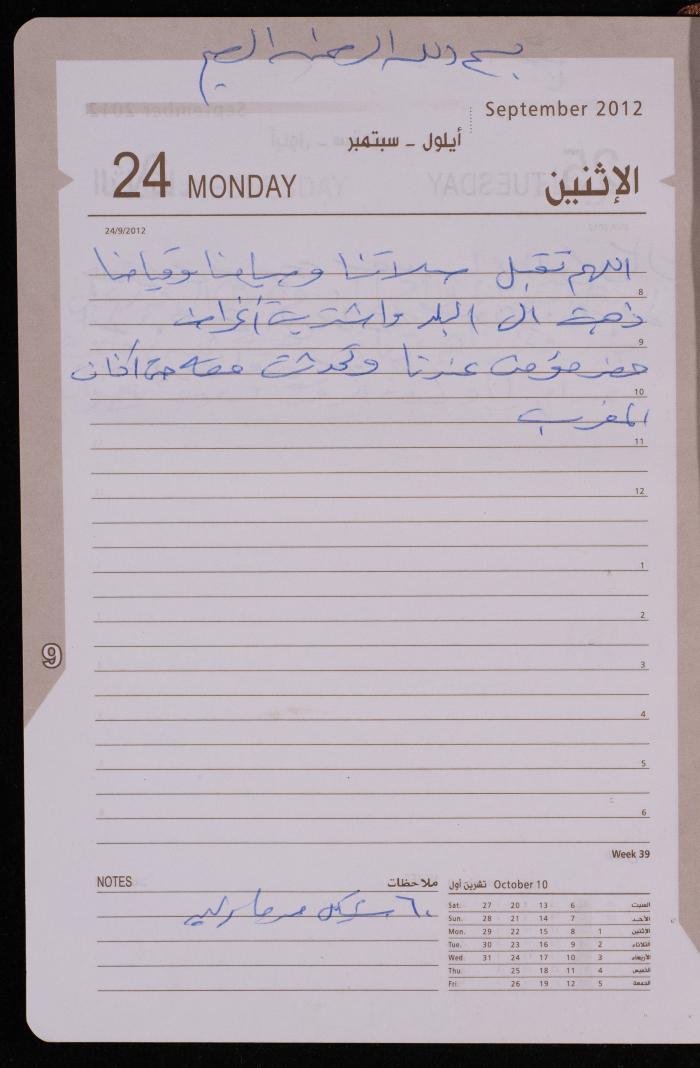 بسم الله الرحمن الرحيم
September 2012
أيلول - سبتمبر
24 MONDAY الإثنين
24/9/2012
اللهم تقبل صلاتنا وصيامنا وقيامنا
8
ذهبت الى البلد واشتريت أغراض
9
حضر مؤمن عندنا وتحدثت معه حتى أذان
10
المغرب
11
12
1
2
9
3
4
5
6
Week 39
NOTES ملاحظات
٦٠ شيكل من
October 10 تشرين أول
Sat. 27 20 13 6 السبت
Sun. 28 21 14 7 الأحد
Mon. 29 22 15 8 1 الإثنين
Tue. 30 23 16 9 2 الثلاثاء
Wed. 31 24 17 10 3 الأربعاء
Thu. 25 18 11 4 الخميس
Fri. 26 19 12 5 الجمعة